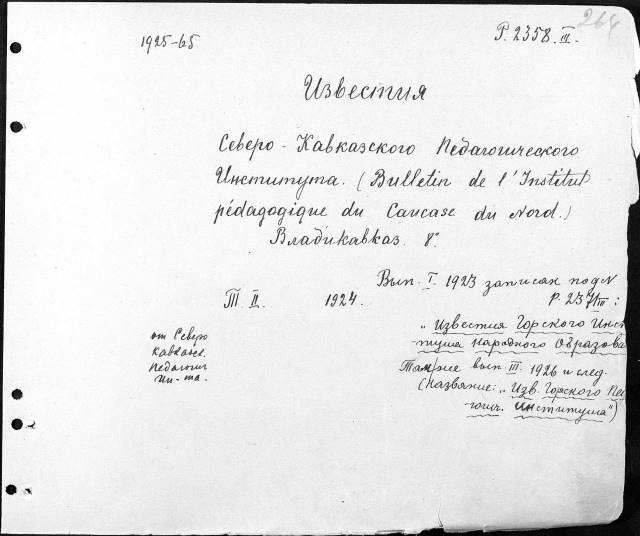 264
1925-65
Р. 2358. III.
Известия
Северо-Кавказского Педагогического
Института. (Bulletin de l'Institut
pédagogique du Caucase du Nord.)
Владикавказ. 8°.
Вып. I. 1923 записан под N
Р. 237/III:
Т. II. 1924.
„Известия Горского Инст
тута Народного Образова
Там же вып. III. 1926 и след.
(название: „Изв. Горского Пед
гогич. института")
от Северо
Кавказск.
Педагогич
Ин-та.